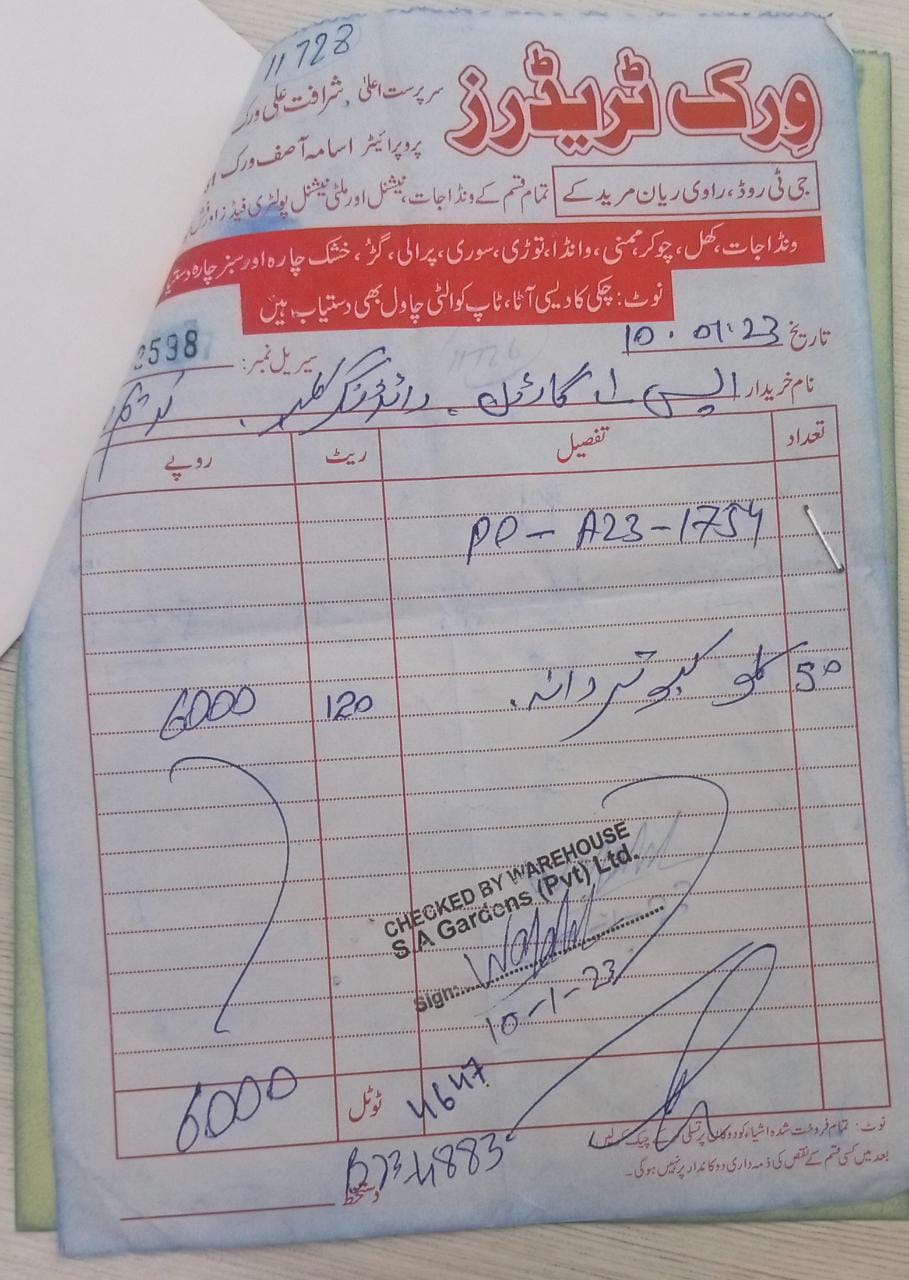 11728
ورک ٹریڈرز
سرپرست اعلیٰ شرافت علی ورک
پروپرائیٹر اسامہ آصف ورک
جی ٹی روڈ، راوی ریان مرید کے
تمام قسم کے ونڈا جات، نیشنل اور ملٹی نیشنل پولٹری فیڈز اور
ونڈا جات، کھل، چوکر، ممنی، وانڈا، توڑی، سوری، پرالی، گڑ، خشک چارہ اور سبز چارہ
نوٹ: چکی کا دیسی آٹا، ٹاپ کوالٹی چاول بھی دستیاب ہیں
تاریخ 10.01.23
سیریل نمبر: 2598
نام خریدار ایس اے گارڈن رائڈنگ کلب
تعداد تفصیل ریٹ روپے
PO-A23-1754
50 کلو کبوتر دانہ 120 6000
CHECKED BY WAREHOUSE
S.A Gardens (Pvt) Ltd.
Sign:
10-1-23
ٹوٹل 6000
4647
B73-4883
نوٹ: تمام فروخت شدہ اشیاء کو دوکان پر تسلی سے چیک کر لیں
بعد میں کسی قسم کے نقص کی ذمہ داری دوکاندار پر نہیں ہوگی۔
دستخط